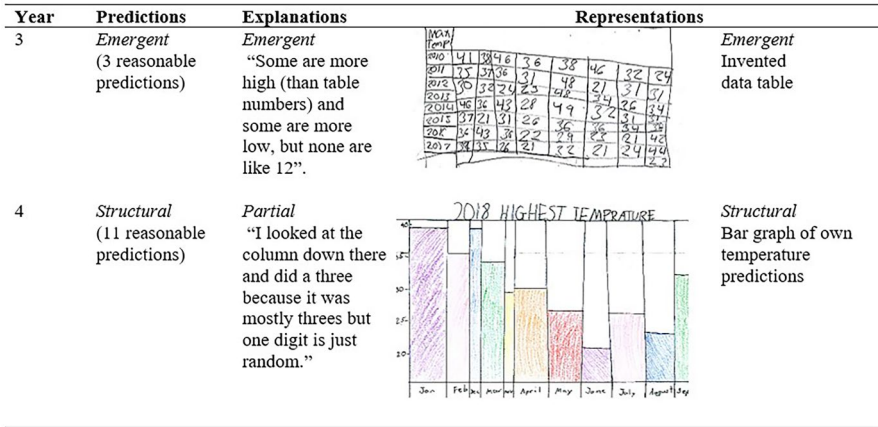 Year Predictions Explanations Representations
3
Emergent
(3 reasonable
predictions)
Emergent
“Some are more
high (than table
numbers) and
some are more
low, but none are
like 12”.
Temp
2010 41 38 46 36 38 46 32 24
2011 35 37 36 31 48 21 31 31
2012 30 32 24 23
2013
2014 46 36 43 28 49 32
2015 37 21 31 26 36
36 43 36 22 29 21 42
2017 35 26 21 32 21 24 44
23
Emergent
Invented
data table
4
Structural
(11 reasonable
predictions)
Partial
“I looked at the
column down there
and did a three
because it was
mostly threes but
one digit is just
random.”
2018 HIGHEST TEMPRATURE
40
35
30
25
Jan Feb Mar April May June July August Sep
Structural
Bar graph of own
temperature
predictions